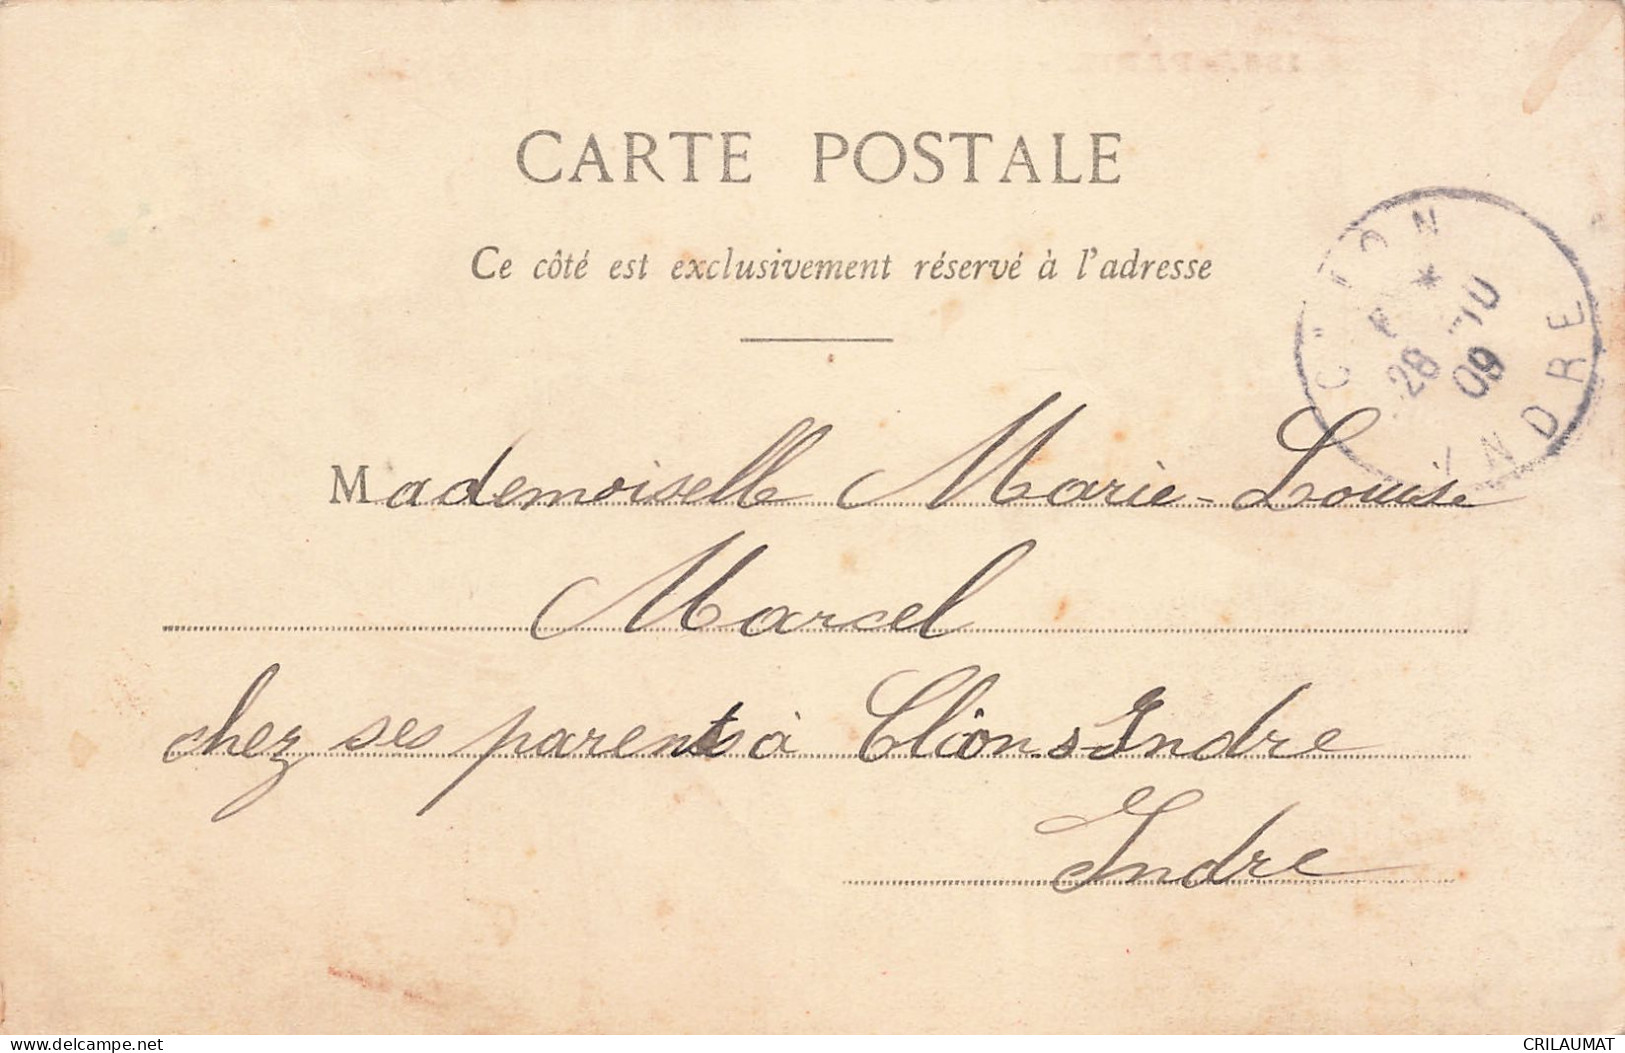 CARTE POSTALE
Ce côté est exclusivement réservé à l'adresse
CLION
*
28
09
INDRE
Mademoiselle Marie-Louise
Marcel
chez ses parents à Clion s-Indre
Indre
delcampe.net
CRILAUMAT